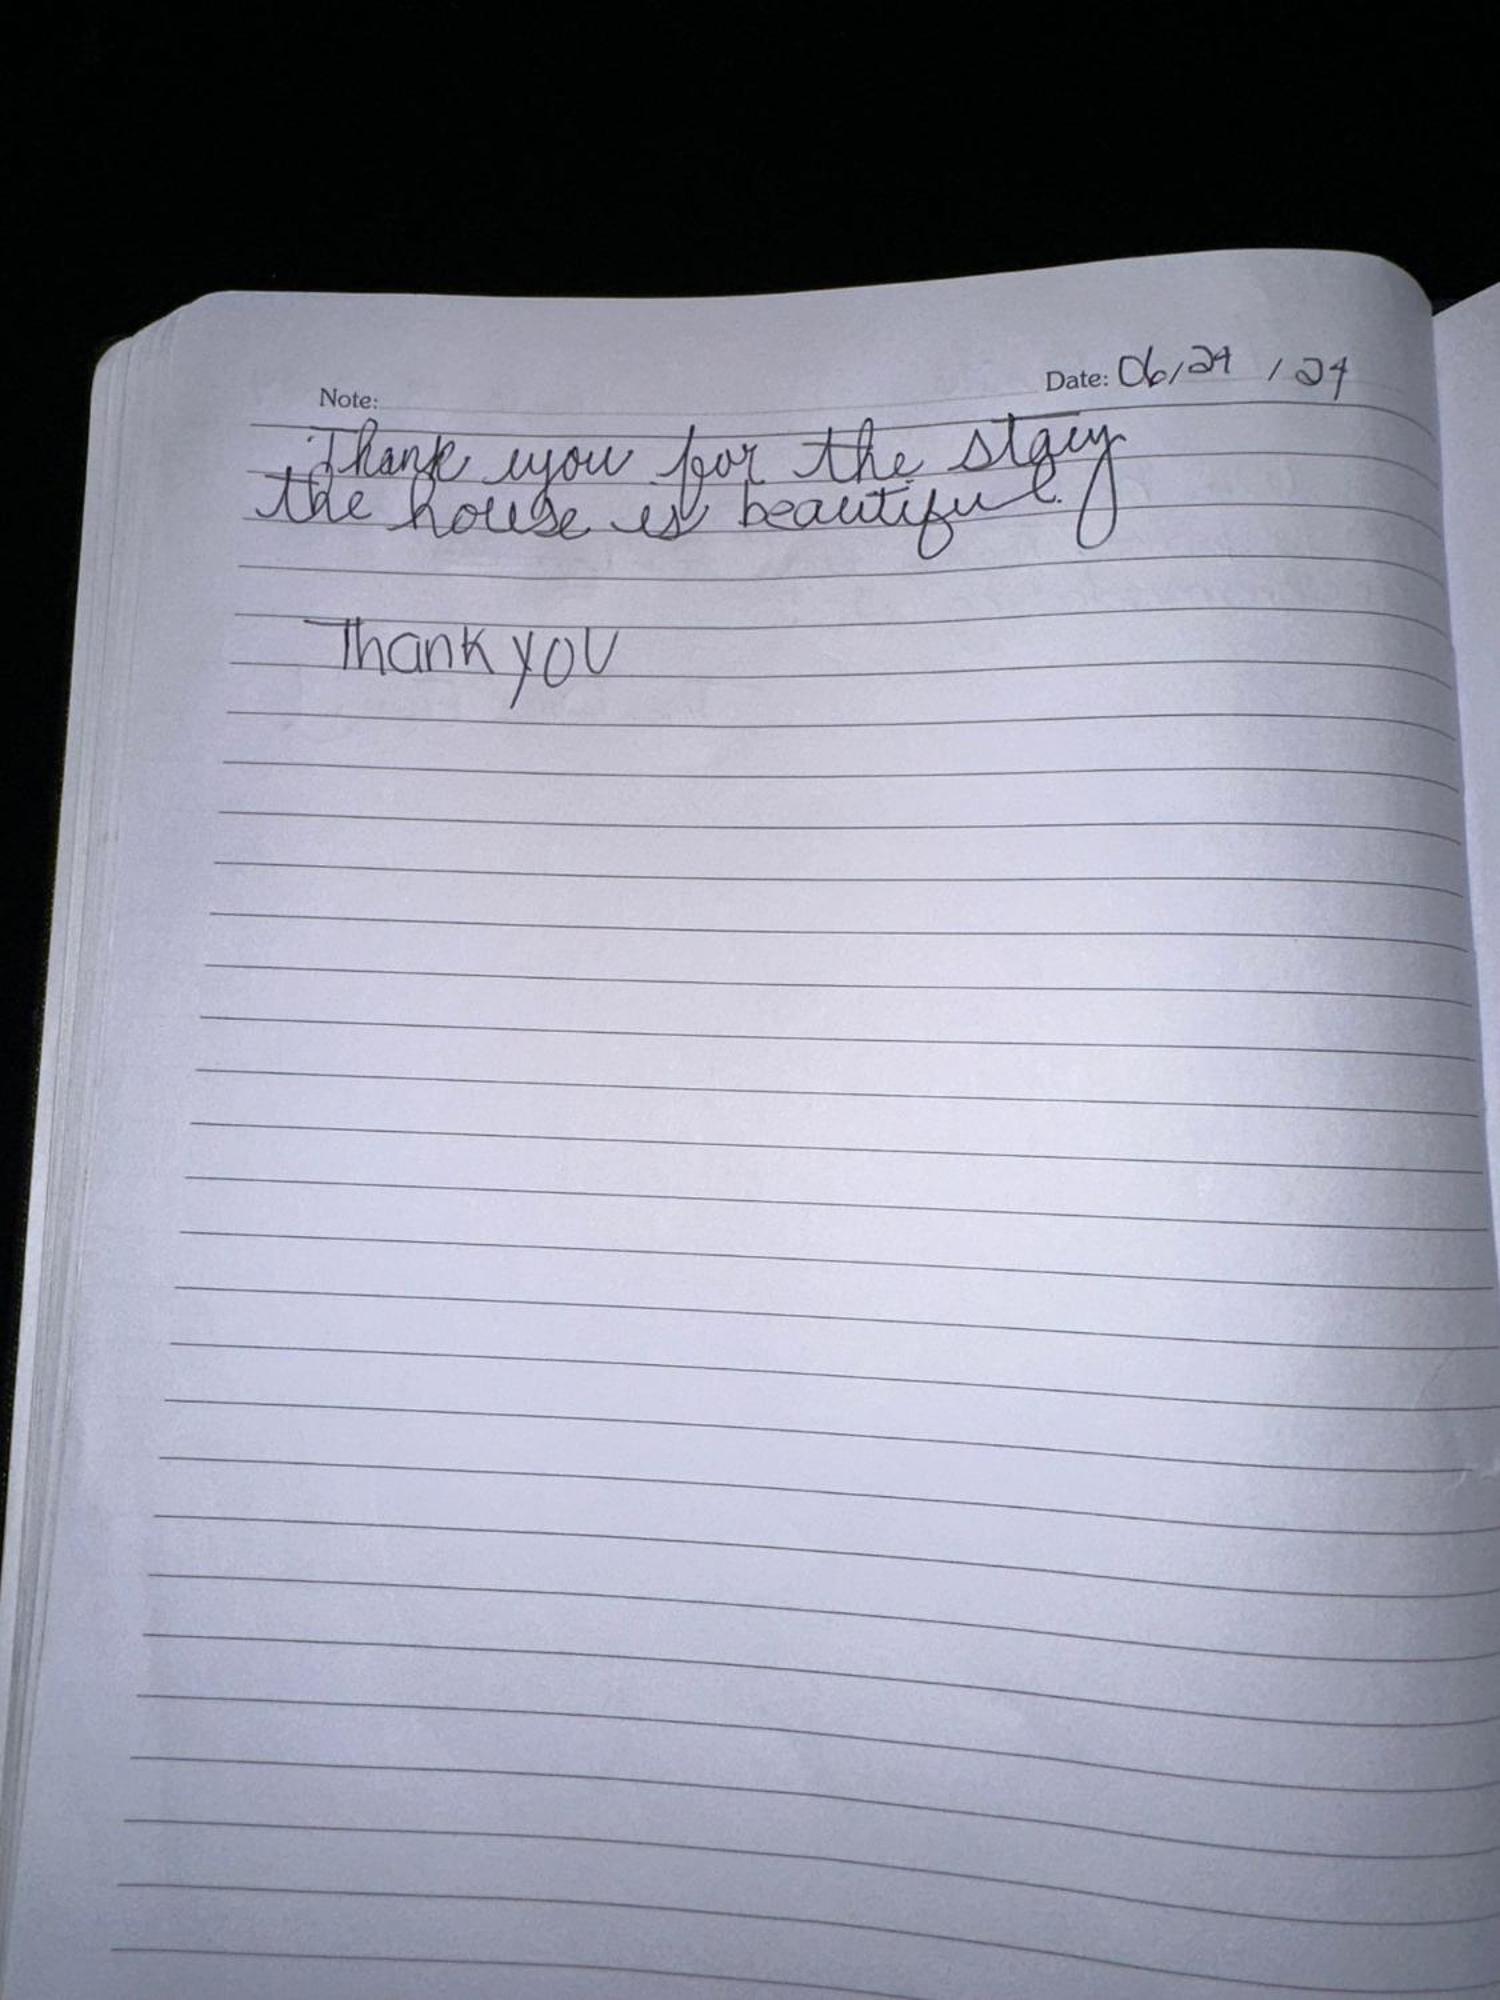 Note: Date: 06/24/24
Thank you for the stay
the house is beautiful.
Thank you